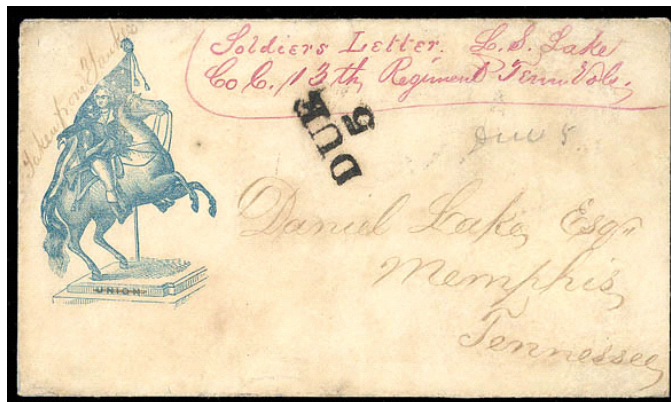 Taken from Yankee
Soldiers Letter. L. S. Lake
Co C. 13th, Regiment Tenn Vols,
DUE
5
Due 5
Daniel Lake, Esqr
Memphis,
Tennessee,
UNION